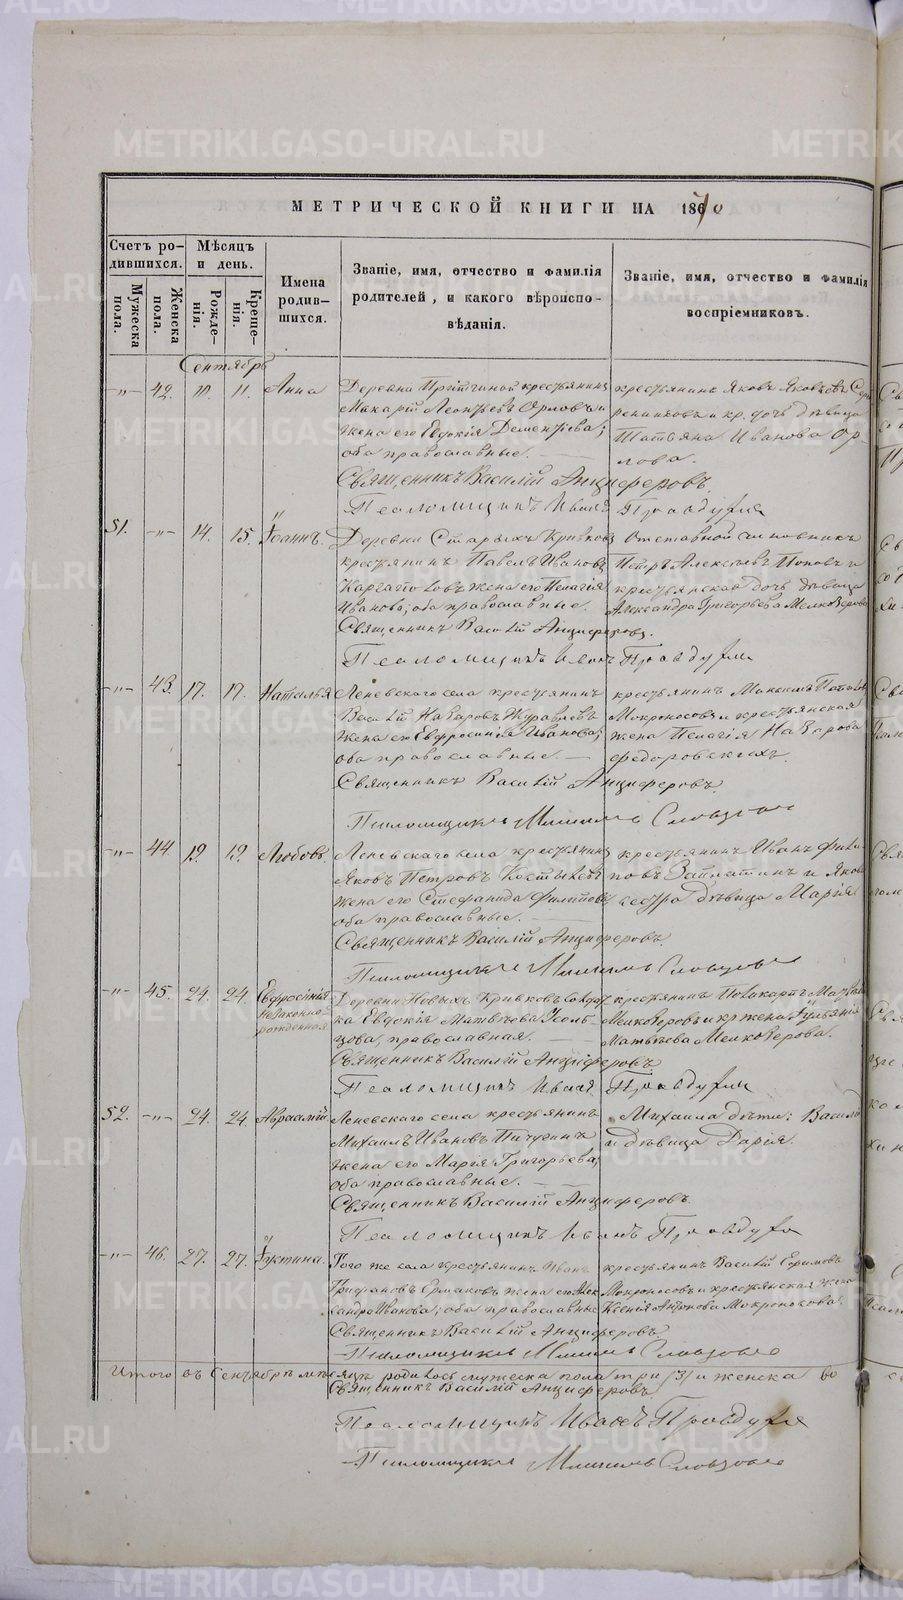 МЕТРИЧЕСКОЙ КНИГИ НА 1870
Счетъ родившихся.
Мужеска пола.
Женска пола.
Мѣсяцъ и день.
Рожденія.
Крещенія.
Имена родившихся.
Званіе, имя, отчество и фамилія
родителей, и какого вѣроиспо-
вѣданія.
Званіе, имя, отчество и фамилія
воспріемниковъ.
Сентябрь
-„- 42. 11. Анна
Деревни крестьянинъ
Макарій Леонтьевъ Орловъ и
жена его Евдокія Дементьева;
оба православные.
крестьянинъ Яковъ Яковлевъ
и кр. дочь дѣвица
Татьяна Иванова Ор-
лова.
Священникъ Василій Анциферовъ.
Псаломщикъ Иванъ
51. -„- 14. 15. Іоаннъ.
Деревни Старыхъ Кривковъ
крестьянинъ Павелъ Ивановъ
жена его Пелагія
Иванова, оба православные.
Отставной чиновникъ
Петръ Алексѣевъ Поповъ и
крестьянская дочь дѣвица
Александра Григорьева Мелкозерова
Священникъ Василій Анциферовъ.
Псаломщикъ Иванъ
-„- 43. 17. 17. Наталья
Леневскаго села крестьянинъ
Василій Назаровъ Журавлевъ
жена его Евфросинія Иванова;
оба православные.
крестьянинъ Максимъ
Мокроносовъ и крестьянская
жена Пелагія Назарова
Федоровскихъ.
Священникъ Василій Анциферовъ.
Псаломщикъ Словцовъ
-„- 44. 19. 19. Любовь.
Леневскаго села крестьянинъ
Яковъ Петровъ
жена его Стефанида Филипова
оба православные.
крестьянинъ Иванъ Фили-
повъ Заплатинъ и
сестра дѣвица Марія
Священникъ Василій Анциферовъ.
Псаломщикъ Словцовъ
-„- 45. 24. 24. Евфросинія
незаконно-
рожденная
Деревни Новыхъ Кривковъ
Евдокія Матвѣева Усоль-
цова, православная.
крестьянинъ Поликарпъ
Мелкозеровъ и кр жена
Матвѣева Мелкозерова.
Священникъ Василій Анциферовъ
Псаломщикъ Иванъ
52. -„- 24. 24. Авраамій.
Леневскаго села крестьянинъ
Михаилъ Ивановъ Пичугинъ
жена его Марія Григорьева;
оба православные.
Михаила дѣти: Василій
и дѣвица Дарія.
Священникъ Василій Анциферовъ.
Псаломщикъ Иванъ
-„- 46. 27. 27. Іустина.
Того же села крестьянинъ Иванъ
Трифановъ Ермаковъ жена его Алек
сандра Иванова; оба православные
крестьянинъ Василій Ефимовъ
Мокроносовъ и крестьянская жена
Ксенія Мокроносова.
Священникъ Василій Анциферовъ.
Псаломщикъ Словцовъ
Итого въ Сентябрѣ мѣсяцѣ родилось мужеска пола три (3) и женска
Священникъ Василій Анциферовъ
Псаломщикъ Иванъ
Псаломщикъ Словцовъ
METRIKI.GASO-URAL.RU